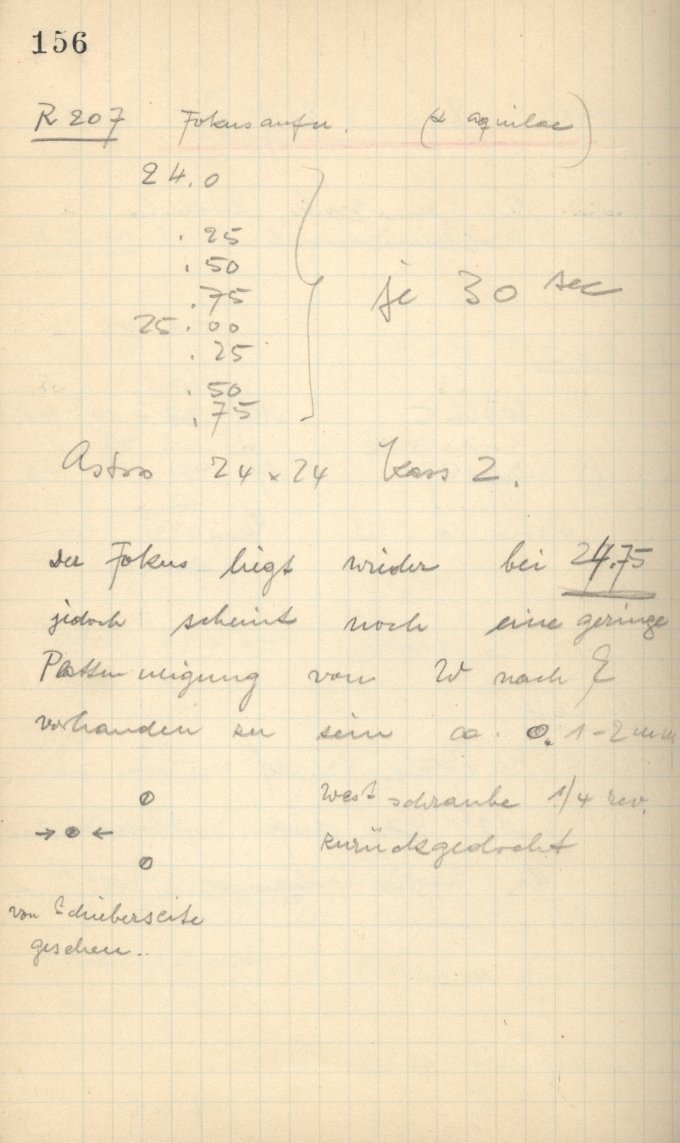 156
R 207 Fokusaufn. (α aquilae)
24.0
.25
.50
.75
25.00
.25
.50
.75
je 30 sec
Astro 24 x 24 Kass 2.
Der Fokus liegt wieder bei 24.75
jedoch scheint noch eine geringe
Plattenneigung von W nach E
vorhanden zu sein ca. 0.1-2 mm
West schraube 1/4 rev.
→ ←
zurückgedreht
von Schieberseite
gesehen..